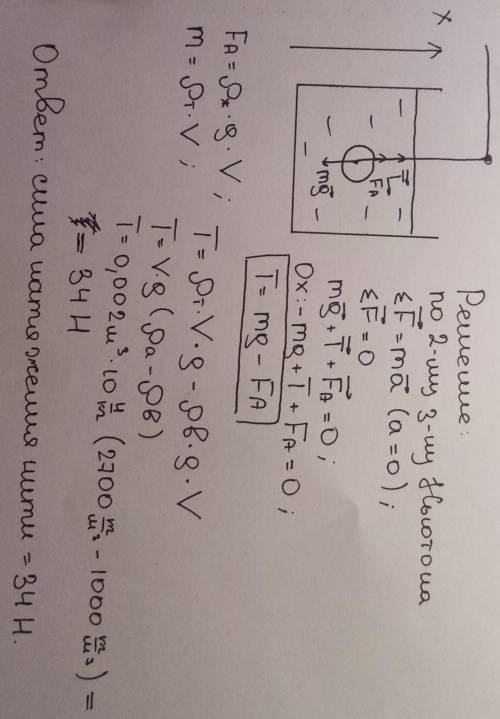 Решение:
по 2-му З-му Ньютона
ΣF⃗ = ma⃗ (a=0);
ΣF⃗ = 0
mg⃗ + T⃗ + F⃗A = 0;
Ox: -mg + T + FA = 0;
T = mg - FA
X
T⃗
FA
mg⃗
FA = ρж · g · V;
m = ρт · V;
T = ρт · V · g - ρв · g · V
T = V · g (ρа - ρв)
T = 0,002 м³ · 10 Н/м (2700 т/м³ - 1000 т/м³) =
= 34 Н
Ответ: сила натяжения нити = 34 Н.